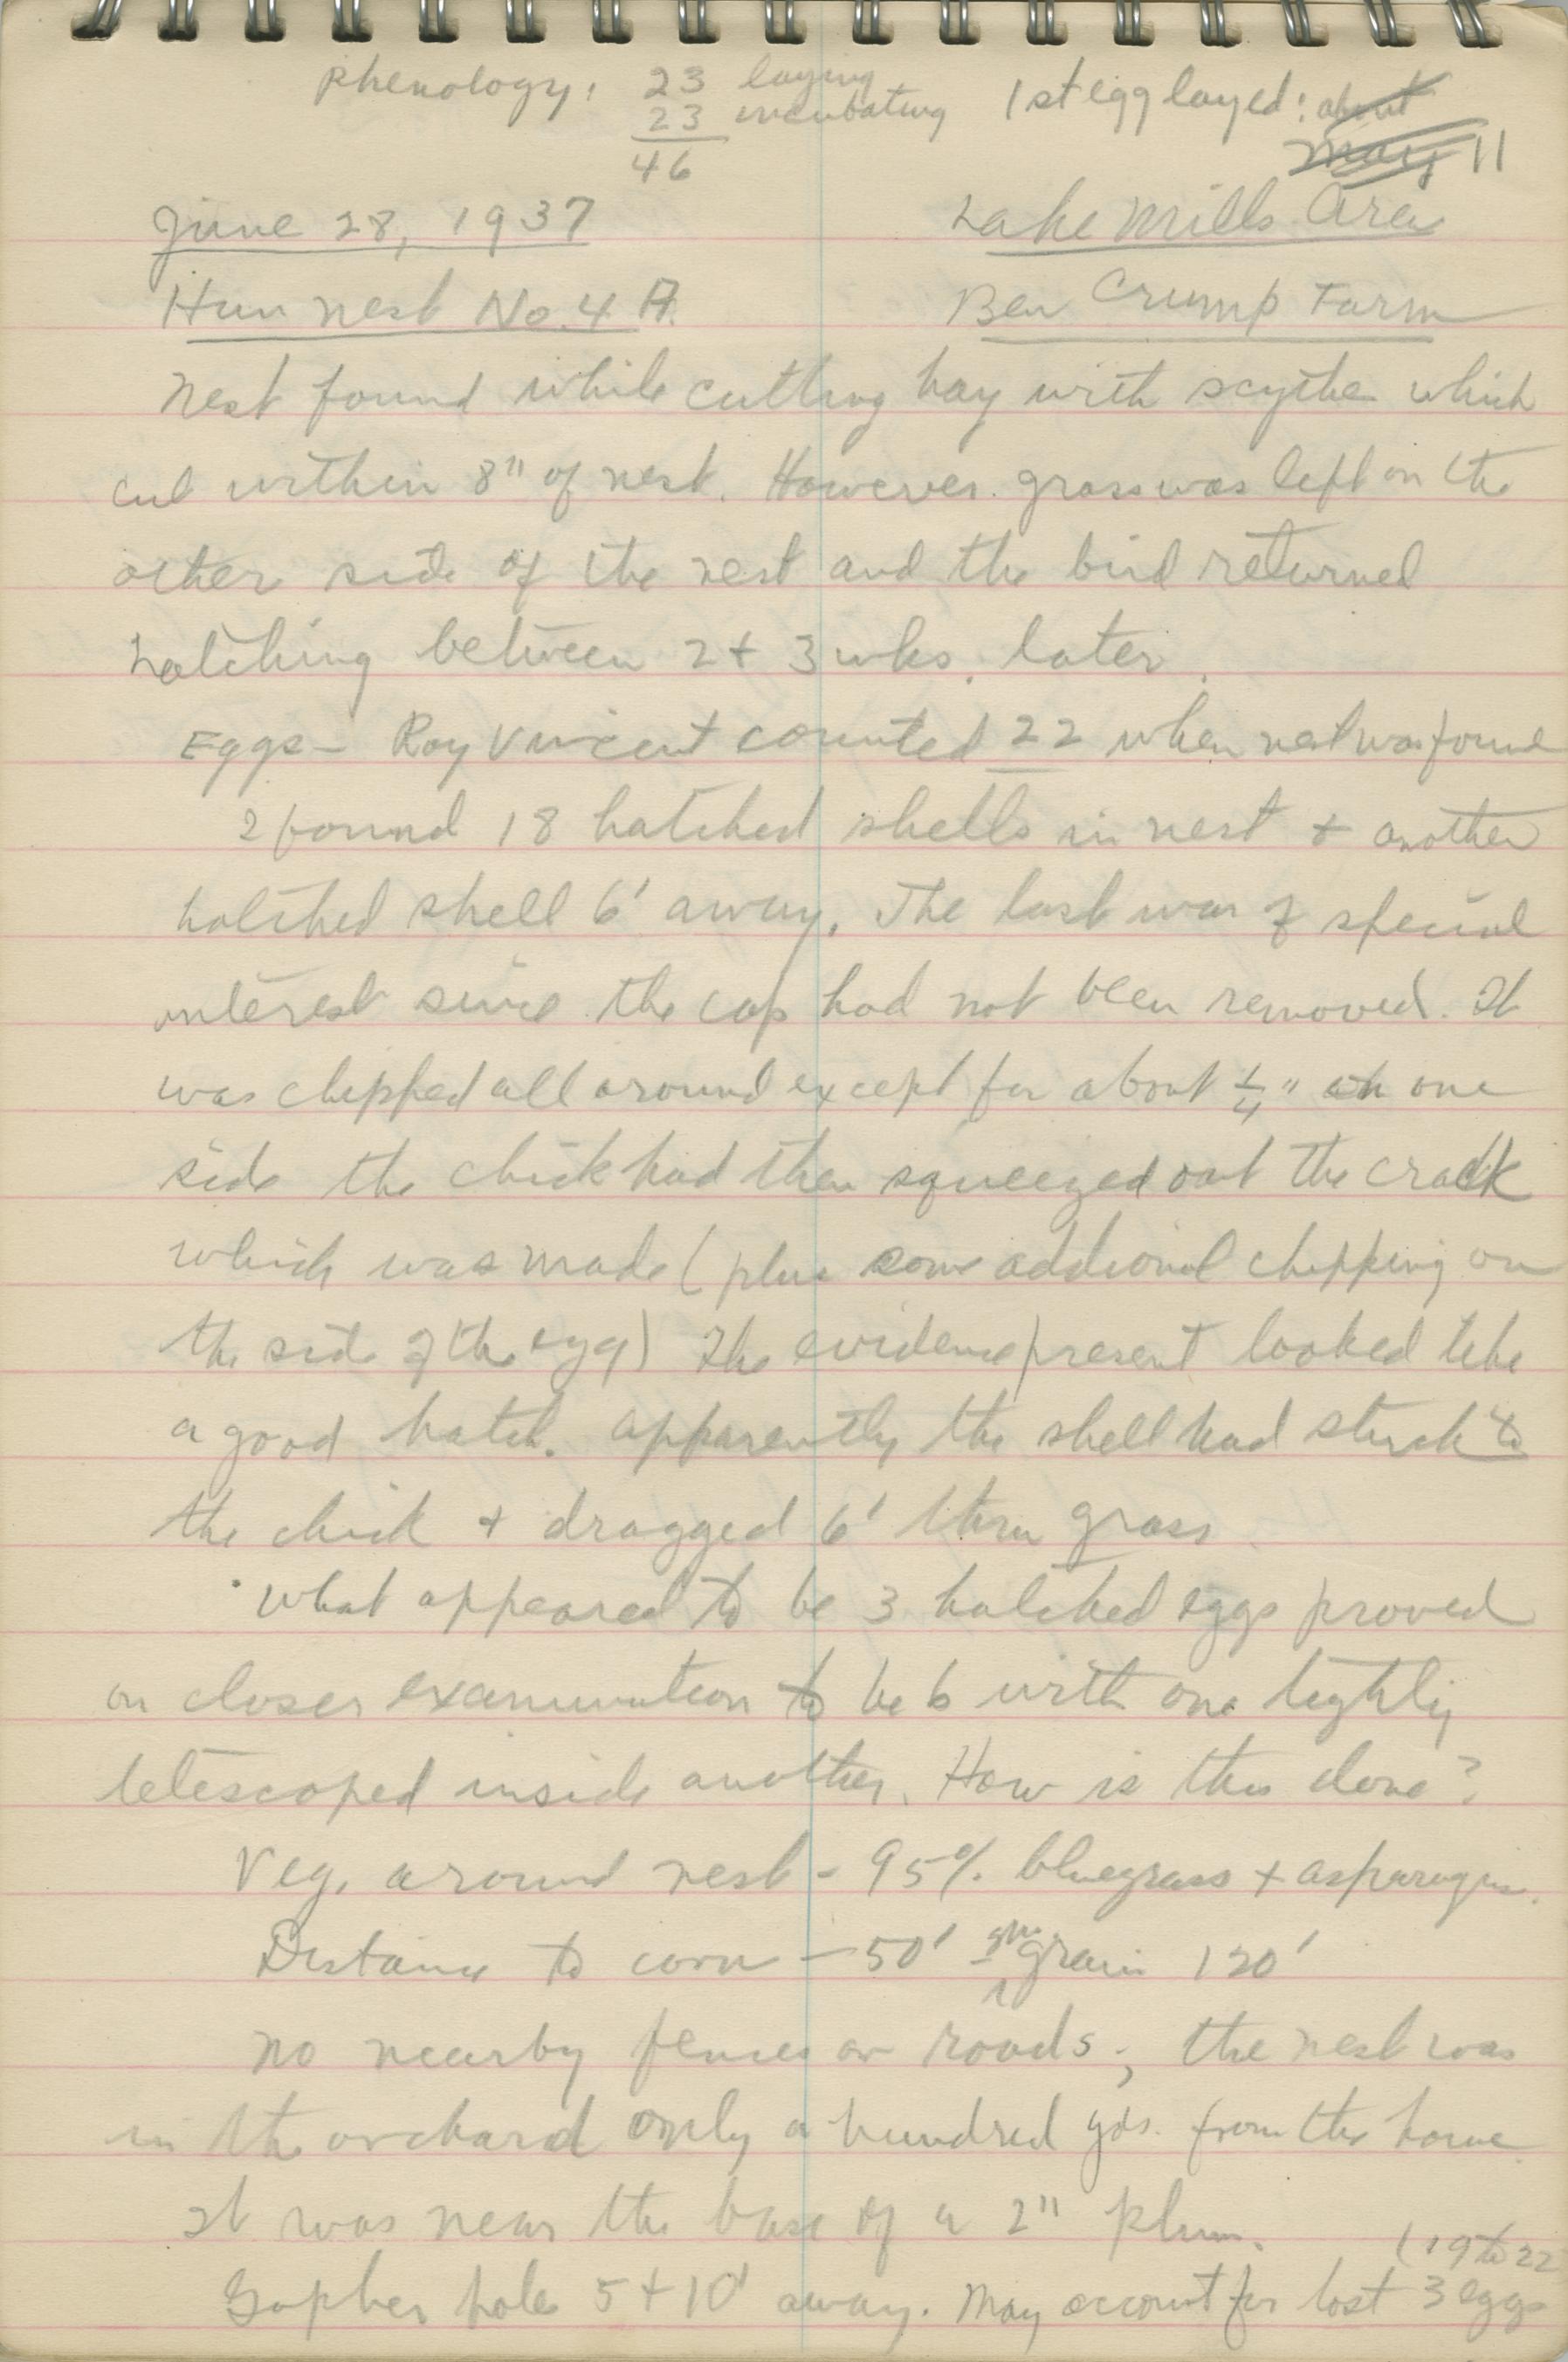 Phenology: 23 laying
23 incubating
46
1st egg layed: about
May 11
June 28, 1937
Lake Mills Area
Hun nest No. 4 A.
Ben Crump Farm
Nest found while cutting hay with scythe which
cut within 8" of nest. However grass was left on the
other side of the nest and the bird returned
hatching between 2 + 3 wks. later.
Eggs - Roy Vincent counted 22 when nest was found
I found 18 hatched shells in nest + another
hatched shell 6' away. The last was of special
interest since the cap had not been removed. It
was chipped all around except for about 1/4" on one
side the chick had then squeezed out the crack
which was made (plus some addional chipping on
the side of the egg) The evidence present looked like
a good hatch. Apparently the shell had stuck to
the chick + dragged 6' thru grass.
What appeared to be 3 hatched eggs proved
on closer examination to be 6 with one tightly
telescoped inside another. How is this done?
Veg. around nest - 95% bluegrass + asparagus.
Distance to corn - 50' - sm grain 120'
No nearby fences or roads; the nest was
in the orchard only a hundred yds. from the house.
It was near the base of a 2" plum.
(19 to 22
Gopher hole 5 + 10' away. May account for lost 3 eggs